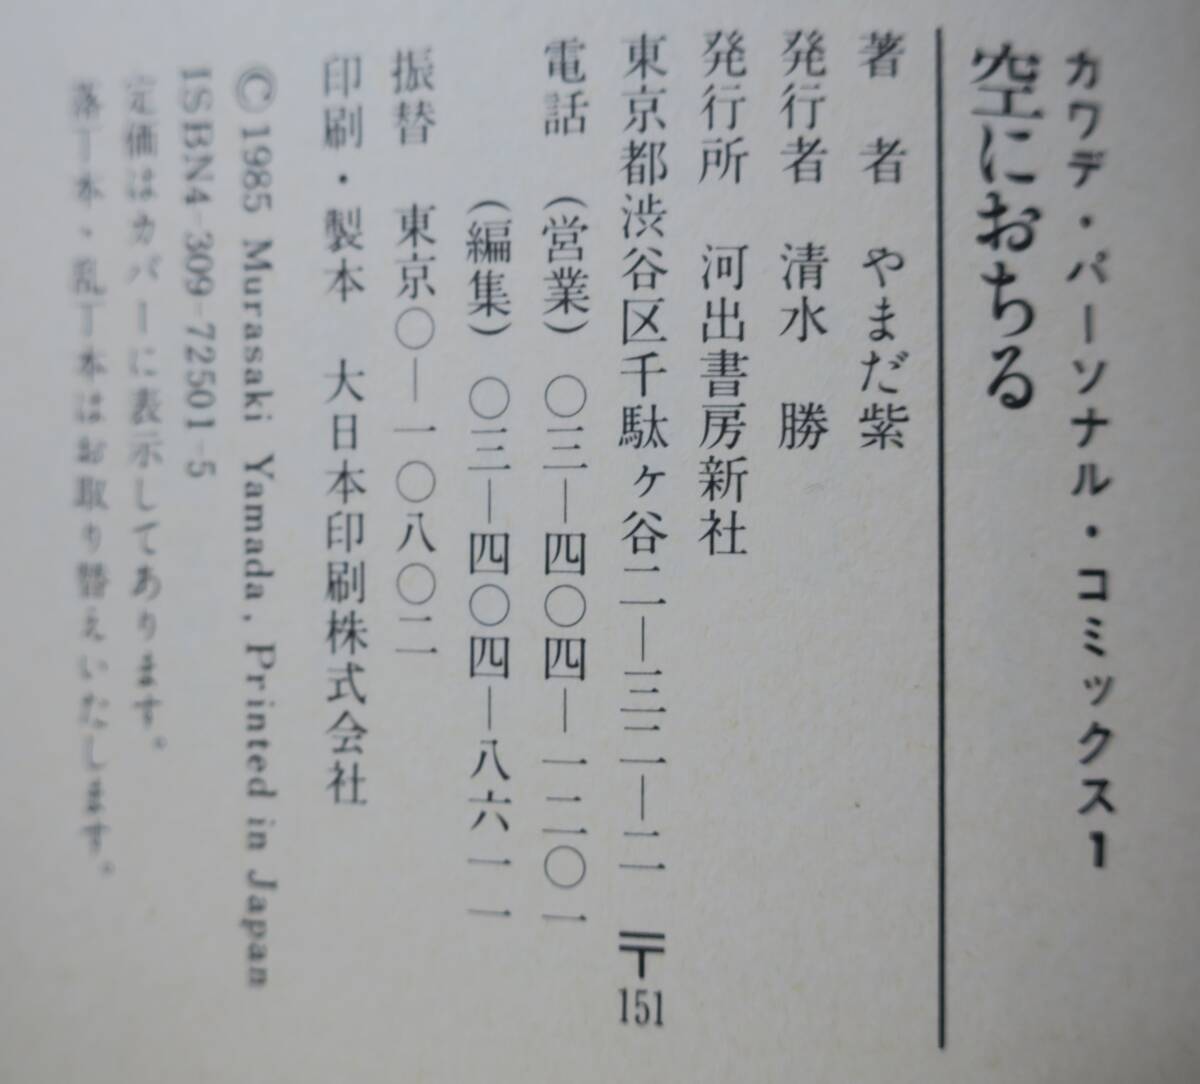 カワデ・パーソナル・コミックス1
空におちる
著者 やまだ紫
発行者 清水 勝
発行所 河出書房新社
東京都渋谷区千駄ヶ谷二—三二—二 〒151
電話 (営業) 〇三—四〇四—一二〇一
(編集) 〇三—四〇四—八六一一
振替 東京〇—一〇八〇二
印刷・製本 大日本印刷株式会社
©1985 Murasaki Yamada, Printed in Japan
ISBN4-309-72501-5
定価はカバーに表示してあります。
落丁本・乱丁本はお取り替えいたします。